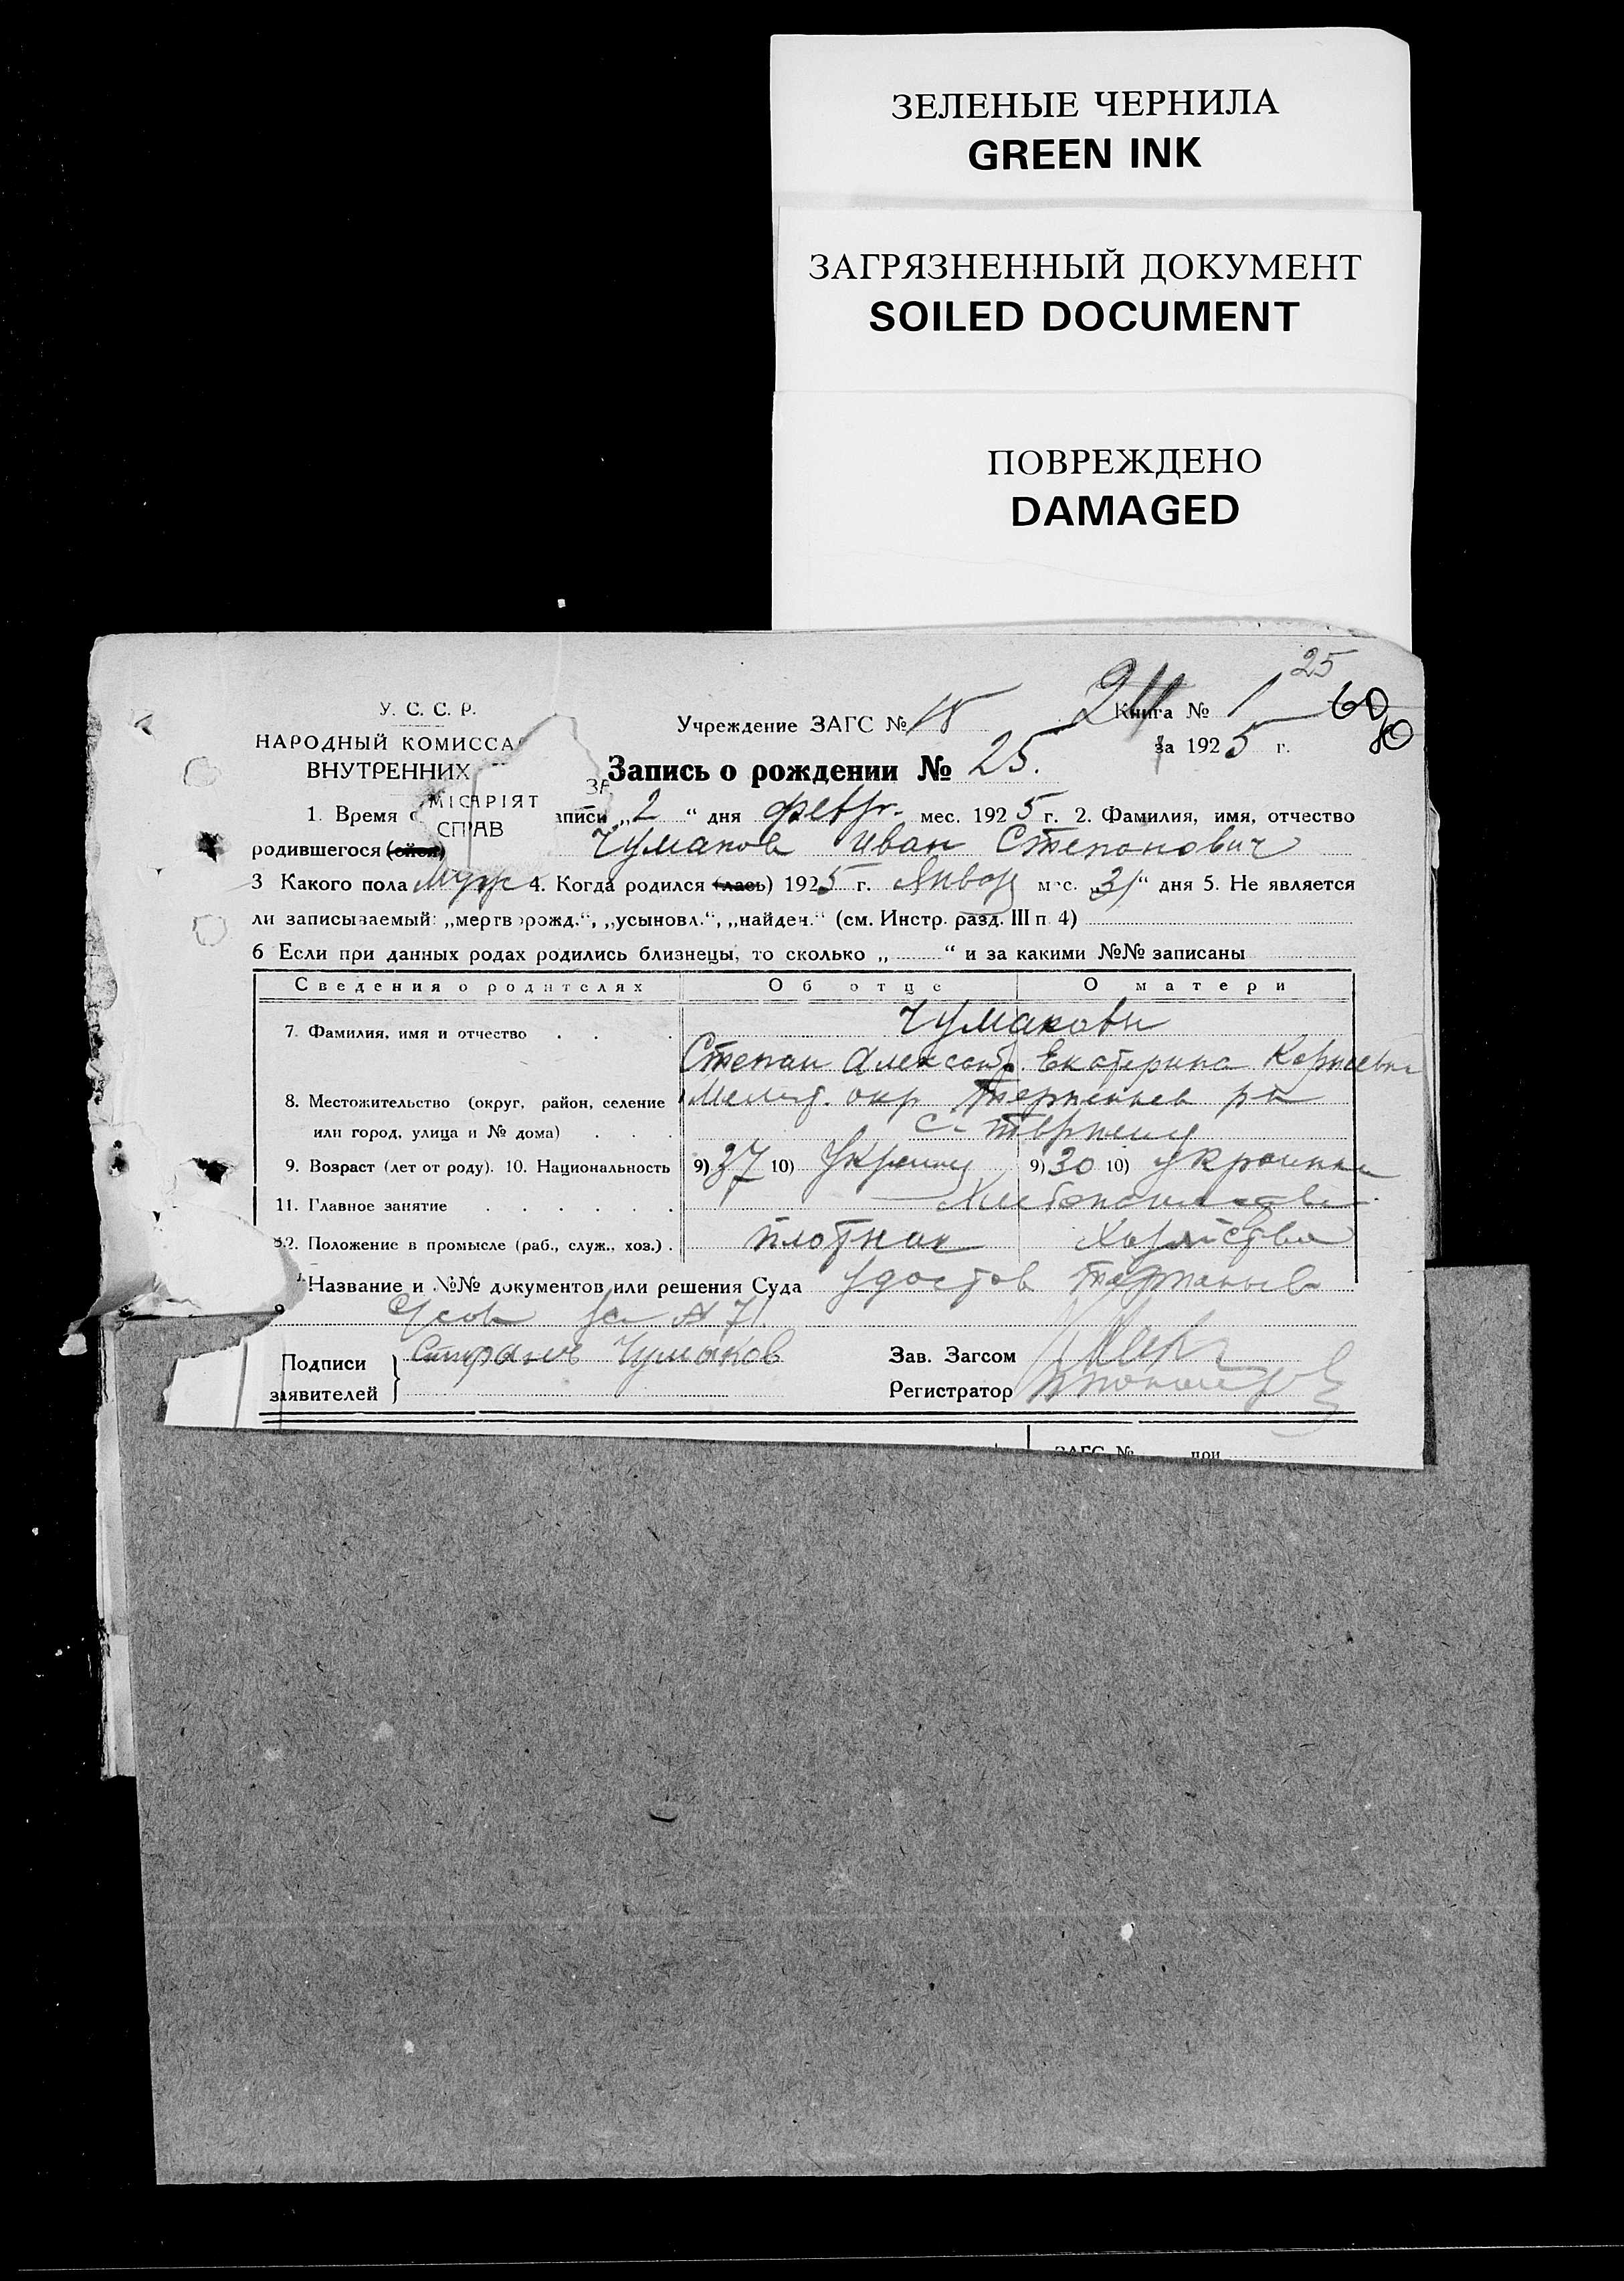 ЗЕЛЕНЫЕ ЧЕРНИЛА
GREEN INK
ЗАГРЯЗНЕННЫЙ ДОКУМЕНТ
SOILED DOCUMENT
ПОВРЕЖДЕНО
DAMAGED
25
У. С. С. Р.
НАРОДНЫЙ КОМИССА
ВНУТРЕННИХ
МІСАРІЯТ
СПРАВ
Учреждение ЗАГС № 18
24 Книга № 1 60
80
за 1925 г.
Запись о рождении № 25.
1. Время аписи „2“ дня февр. мес. 1925 г. 2. Фамилия, имя, отчество
родившегося (ейся) Чумаков Иван Степанович
3 Какого пола муж 4. Когда родился (лась) 1925 г. Январ мес. „31“ дня 5. Не является
ли записываемый: „мертворожд.“, „усыновл.“, „найден.“ (см. Инстр. разд. III п 4)
6 Если при данных родах родились близнецы, то сколько „ “ и за какими №№ записаны
Сведения о родителях Об отце О матери
7. Фамилия, имя и отчество Чумаковы
Степан Александ. Екатерина Корнеевна
8. Местожительство (округ, район, селение Мелит. окр Терпеньев рн
или город, улица и № дома) с. Терпения
9. Возраст (лет от роду). 10. Национальность 9) 37 10) Украинц 9) 30 10) украинка
11. Главное занятие Хлебопашество
12. Положение в промысле (раб., служ., хоз.) плотник Хозяйства
Название и №№ документов или решения Суда удостов Терпеньев
№ 71
Подписи заявителей Чумаков
Зав. Загсом
Регистратор
ЗАГС № при